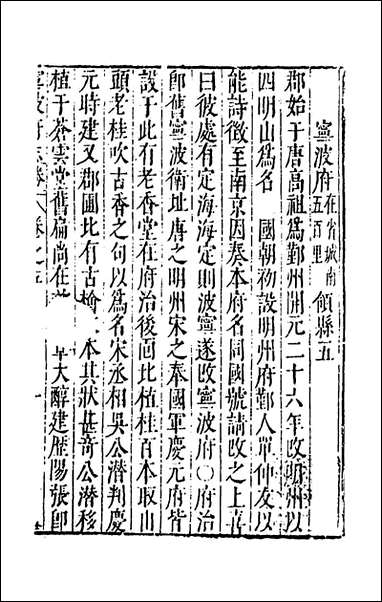 寧波府 在省城南五百里 領縣五
郡始于唐高祖爲鄞州開元二十六年改明州以
四明山爲名 國朝初設明州府鄞人單仲友以
能詩徵至南京因奏本府名同國號請改之上喜
曰彼處有定海海定則波寧遂改寧波府〇府治
即舊寧波衛址唐之明州宋之奉國軍慶元府皆
設于此有老香堂在府治後囿北植桂百本取山
頭老桂吹古香之句以爲名宋丞相吳公潛判慶
元時建又郡圃北有古檜二本其狀甚奇公潛移
植于蒼雲堂舊扁尚在 大醇建歷陽張即
卷之五